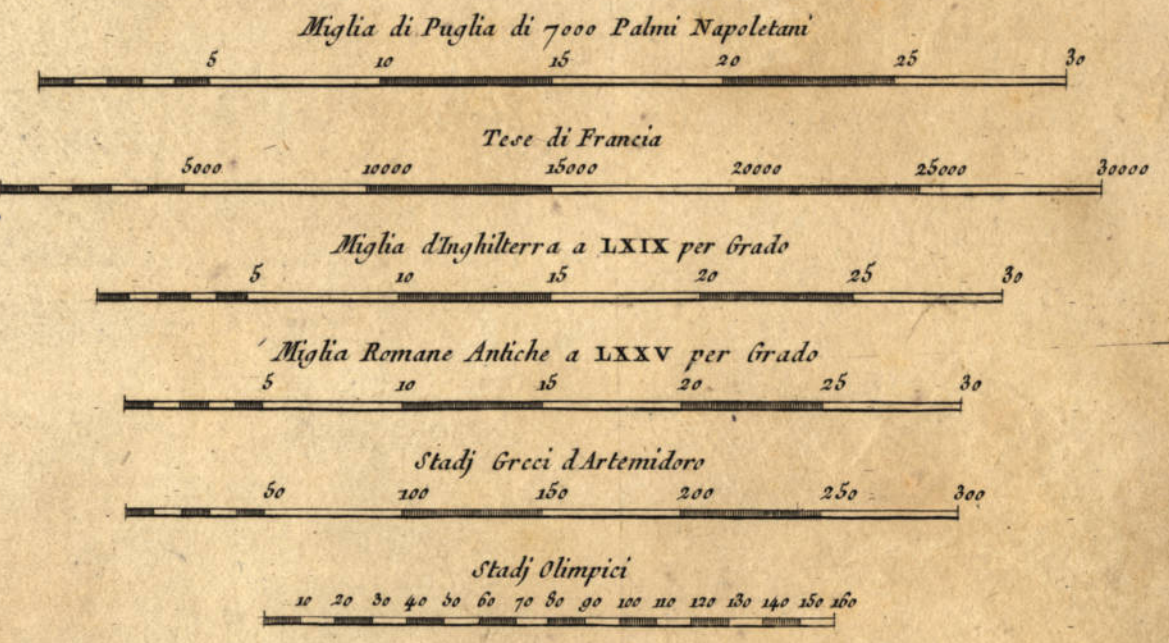 Miglia di Puglia di 7000 Palmi Napoletani
5 10 15 20 25 30
Tese di Francia
5000 10000 15000 20000 25000 30000
Miglia d'Inghilterra a LXIX per Grado
5 10 15 20 25 30
Miglia Romane Antiche a LXXV per Grado
5 10 15 20 25 30
Stadj Greci d'Artemidoro
50 100 150 200 250 300
Stadj Olimpici
10 20 30 40 50 60 70 80 90 100 110 120 130 140 150 160